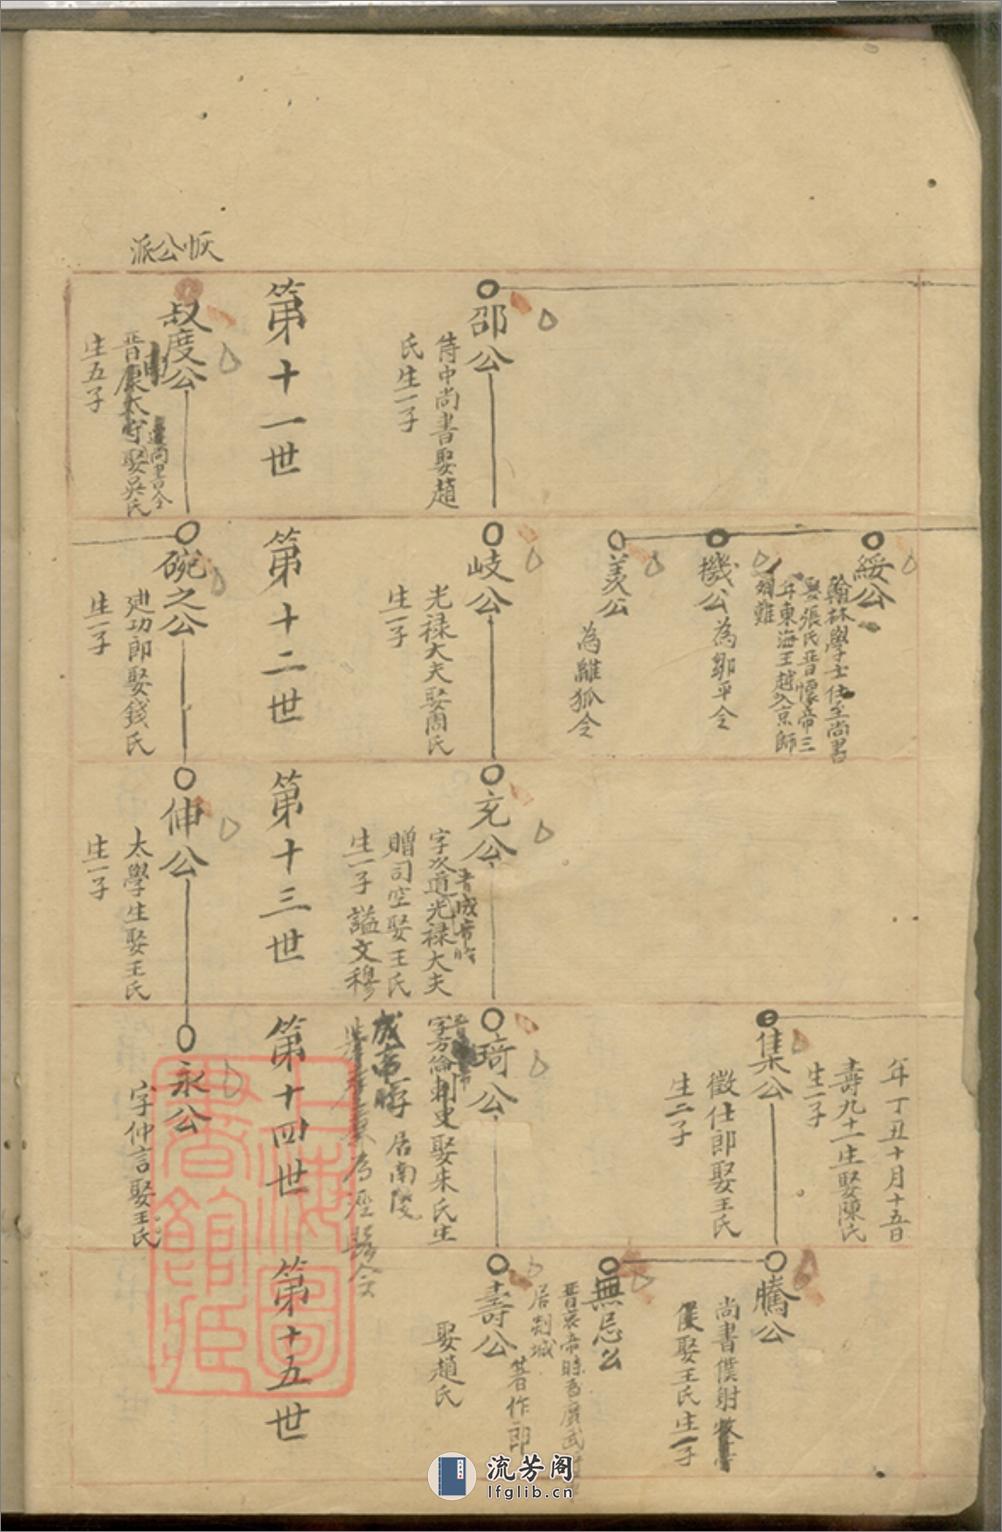 邵公
侍中尚書娶趙
氏生一子
第十一世
恢公派
叔度公
晋康太守娶吳氏
遷尚书令
生五子
綏公
翰林學士仕至尚書
娶張氏晋懷帝三
年東海王越入京師
機公
為鄒平令
羨公
為離狐令
岐公
光禄大夫娶周氏
生一子
第十二世
碗之公
廸功郎娶錢氏
生一子
充公
晋成帝時
字次道光禄大夫
贈司空娶王氏
生一子謚文穆
第十三世
伸公
太學生娶王氏
生一子
年丁丑十月十五日
壽九十一生娶陳氏
生一子
集公
徵仕郎娶王氏
生二子
琦公
字方倫刺史娶朱氏生
一子居南陵
成帝時
為涇縣令
第十四世
永公
字仲言娶王氏
騰公
尚書僕射
娶王氏生一子
無忌公
晋哀帝時為廣武
居剡城
壽公
著作郎
娶趙氏
第十五世
上海圖書館藏
流芳阁
lfglib.cn